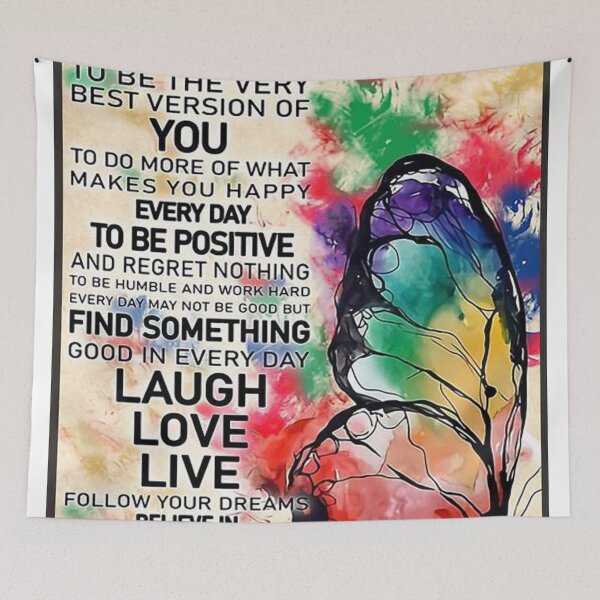 TO BE THE VERY
BEST VERSION OF
YOU
TO DO MORE OF WHAT
MAKES YOU HAPPY
EVERY DAY
TO BE POSITIVE
AND REGRET NOTHING
TO BE HUMBLE AND WORK HARD
EVERY DAY MAY NOT BE GOOD BUT
FIND SOMETHING
GOOD IN EVERY DAY
LAUGH
LOVE
LIVE
FOLLOW YOUR DREAMS
BELIEVE IN